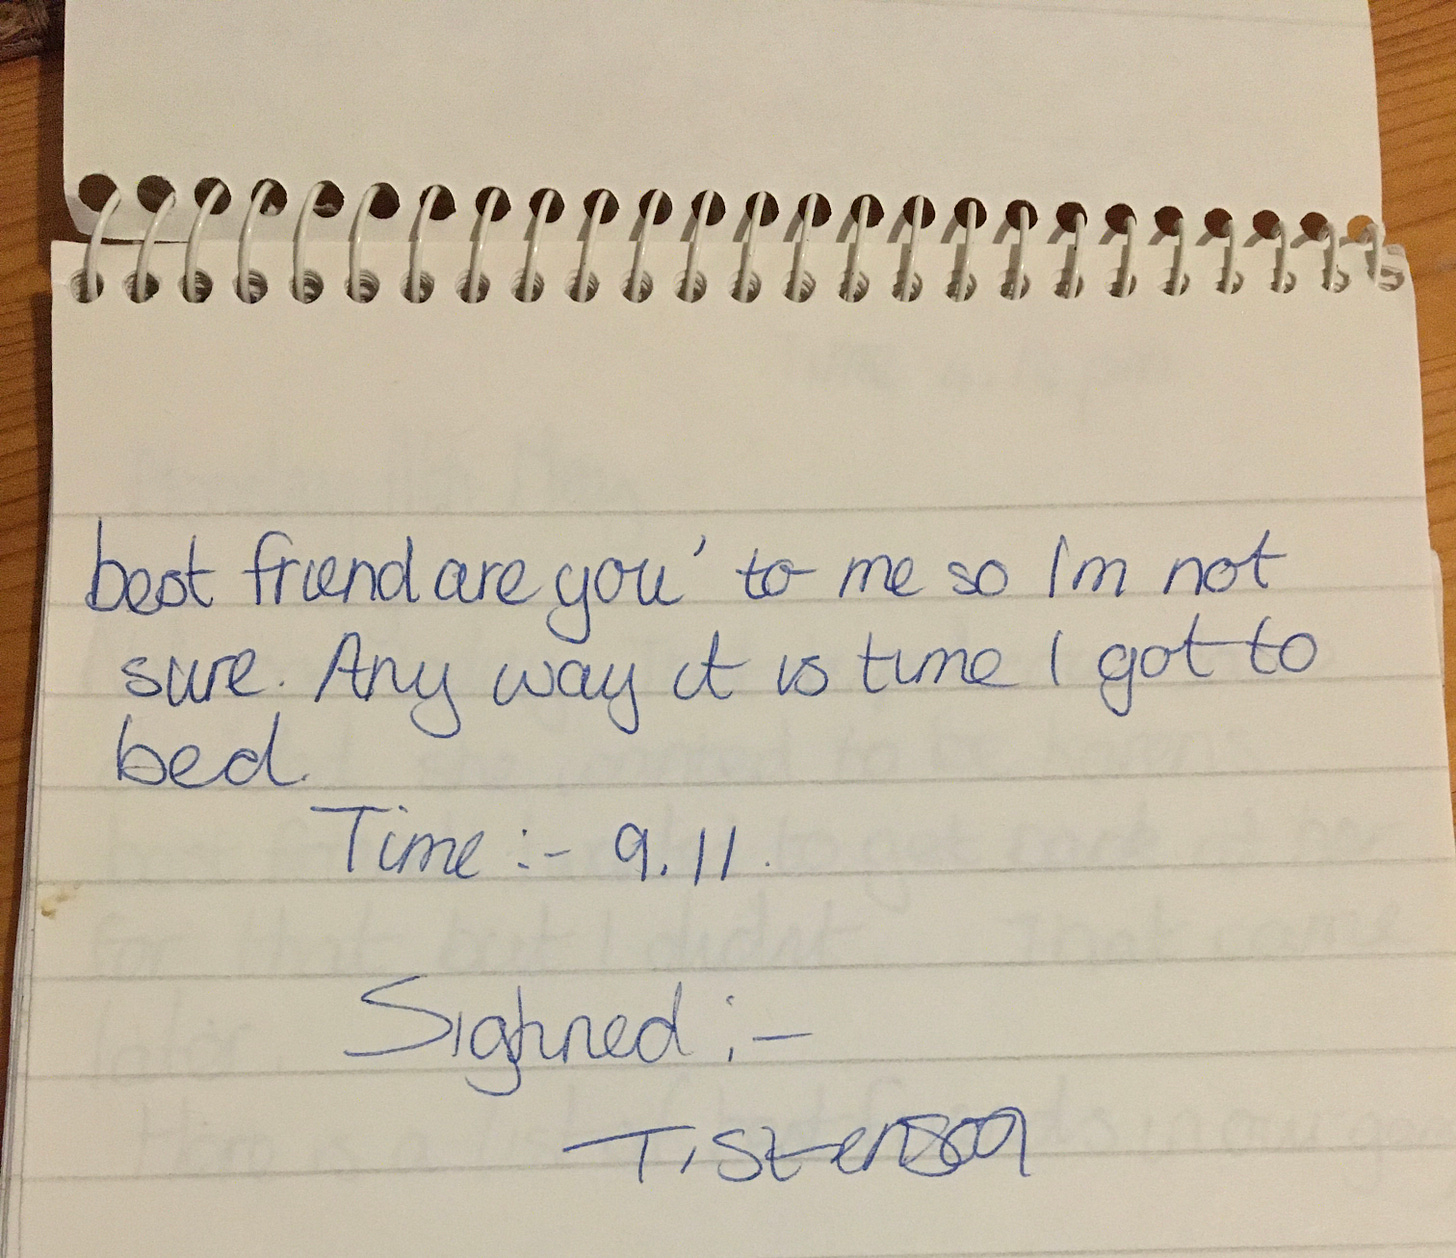 best friend are you' to me so Im not
sure. Any way it is time I got to
bed.
Time :- 9.11.
Sighned :-